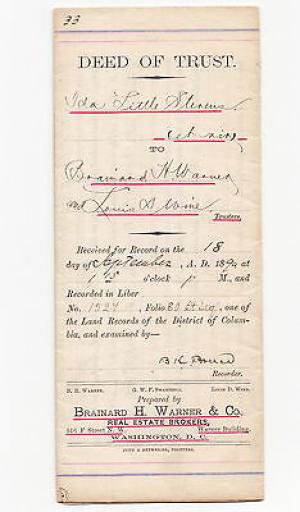 33
DEED OF TRUST.
Ida Little Stevens
et vir
TO
Brainard H. Warner
and Louis D Wine
Trustees.
Received for Record on the 18
day of September, A. D. 1890, at
1 15 o'clock P M., and
Recorded in Liber
No. 1527, Folio 80 et seq, one of
the Land Records of the District of Colum-
bia, and examined by—
Recorder.
B. H. WARNER. G. W. F. SWARTZELL. LOUIS D. WINE.
Prepared by
BRAINARD H. WARNER & CO.
REAL ESTATE BROKERS,
916 F Street N. W. Warner Building.
WASHINGTON, D. C.
JUDD & DETWEILER, PRINTERS.